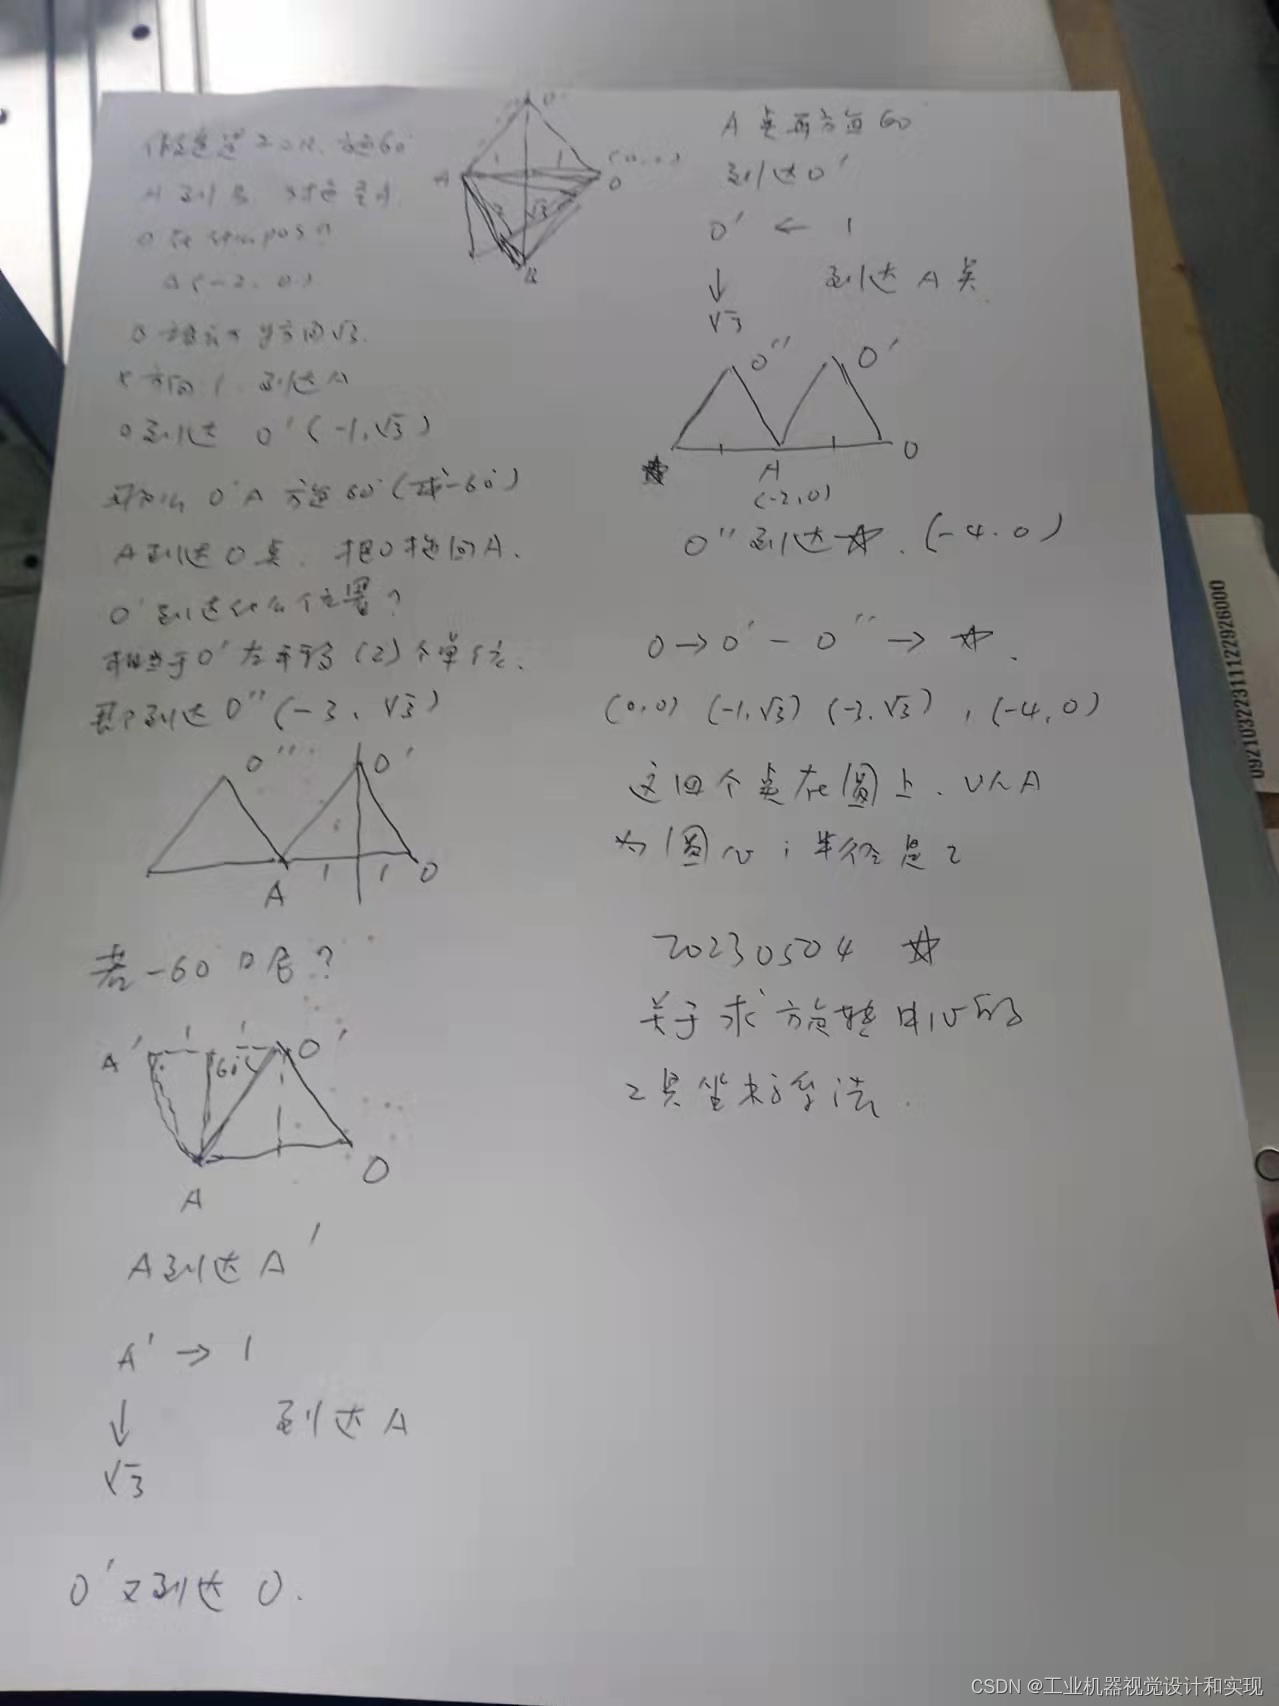 A到B
A(-2,0)
y方向√3.
x方向1,到达A
O到达 O'(-1,√3)
O'A 旋60°(或-60°)
A到达O点. 把O拖回A.
O'到达什么位置?
相当于O'左平移(2)个单位.
即到达O''(-3,√3)
O'' O'
A 1 1 O
若-60°呢?
A' 1 1 O'
60°
A O
A到达A'
A' → 1
↓ 到达A
√3
O'又到达O.
O'
A 1 1 (0,0)
O
2 √3
B
A点再旋60
到达O'
O' ← 1
↓ 到达A点
√3
O'' O'
☆ A O
(-2,0)
O''到达☆. (-4.0)
O→O'-O''→☆.
(0,0) (-1,√3) (-3,√3), (-4,0)
这四个点在圆上.以A
为圆心;半径是2
20230504 ☆
关于求旋转中心的
工具坐标系法.
0921032231112292600​0
CSDN @工业机器视觉设计和实现